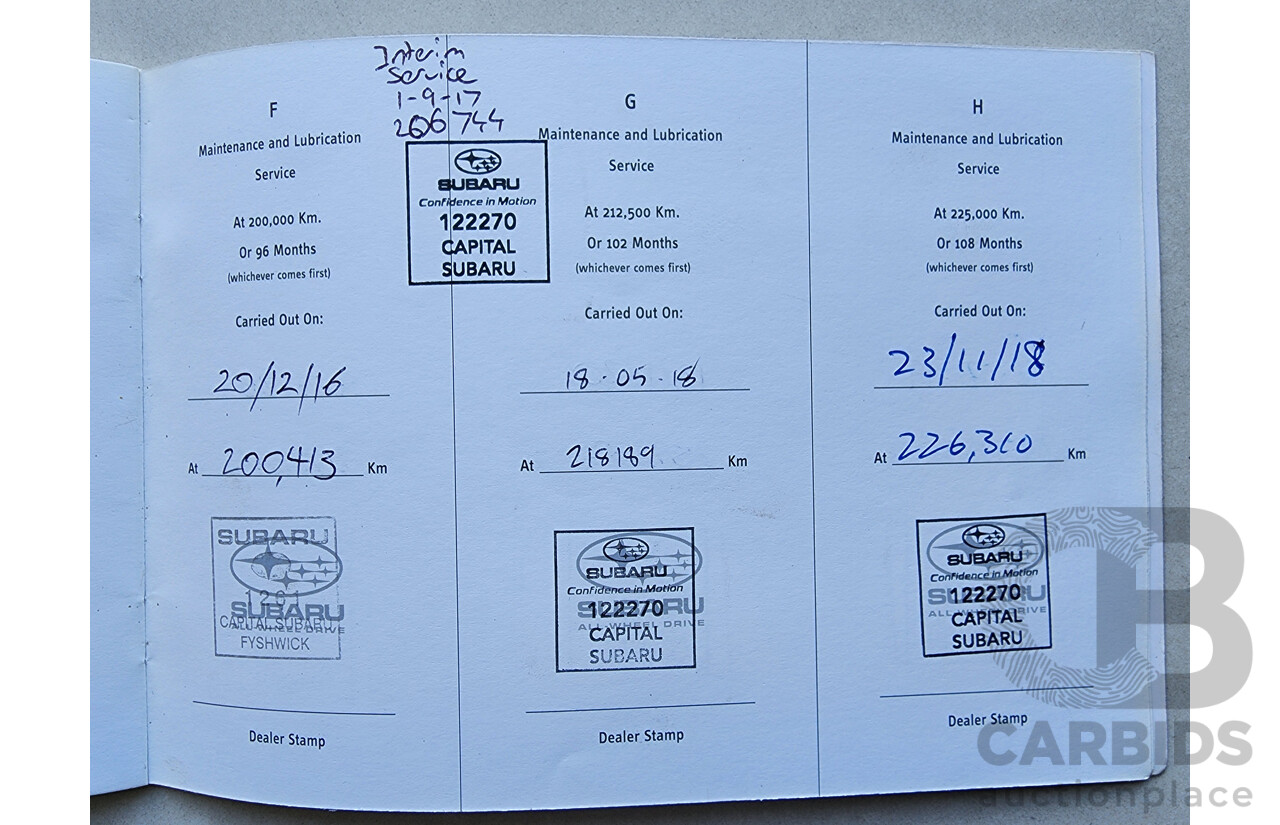 Interim
Service
1-9-17
206744
SUBARU
Confidence in Motion
122270
CAPITAL
SUBARU
F
Maintenance and Lubrication
Service
At 200,000 Km.
Or 96 Months
(whichever comes first)
Carried Out On:
20/12/16
At 200,413 Km
SUBARU
1261
SUBARU
CAPITAL SUBARU
ALL WHEEL DRIVE
FYSHWICK
Dealer Stamp
G
Maintenance and Lubrication
Service
At 212,500 Km.
Or 102 Months
(whichever comes first)
Carried Out On:
18.05.18
At 218189 Km
SUBARU
Confidence in Motion
122270
SUBARU
ALL WHEEL DRIVE
CAPITAL
SUBARU
Dealer Stamp
H
Maintenance and Lubrication
Service
At 225,000 Km.
Or 108 Months
(whichever comes first)
Carried Out On:
23/11/18
At 226,310 Km
SUBARU
Confidence in Motion
122270
SUBARU
ALL WHEEL DRIVE
CAPITAL
SUBARU
Dealer Stamp
CARBIDS
auctionplace